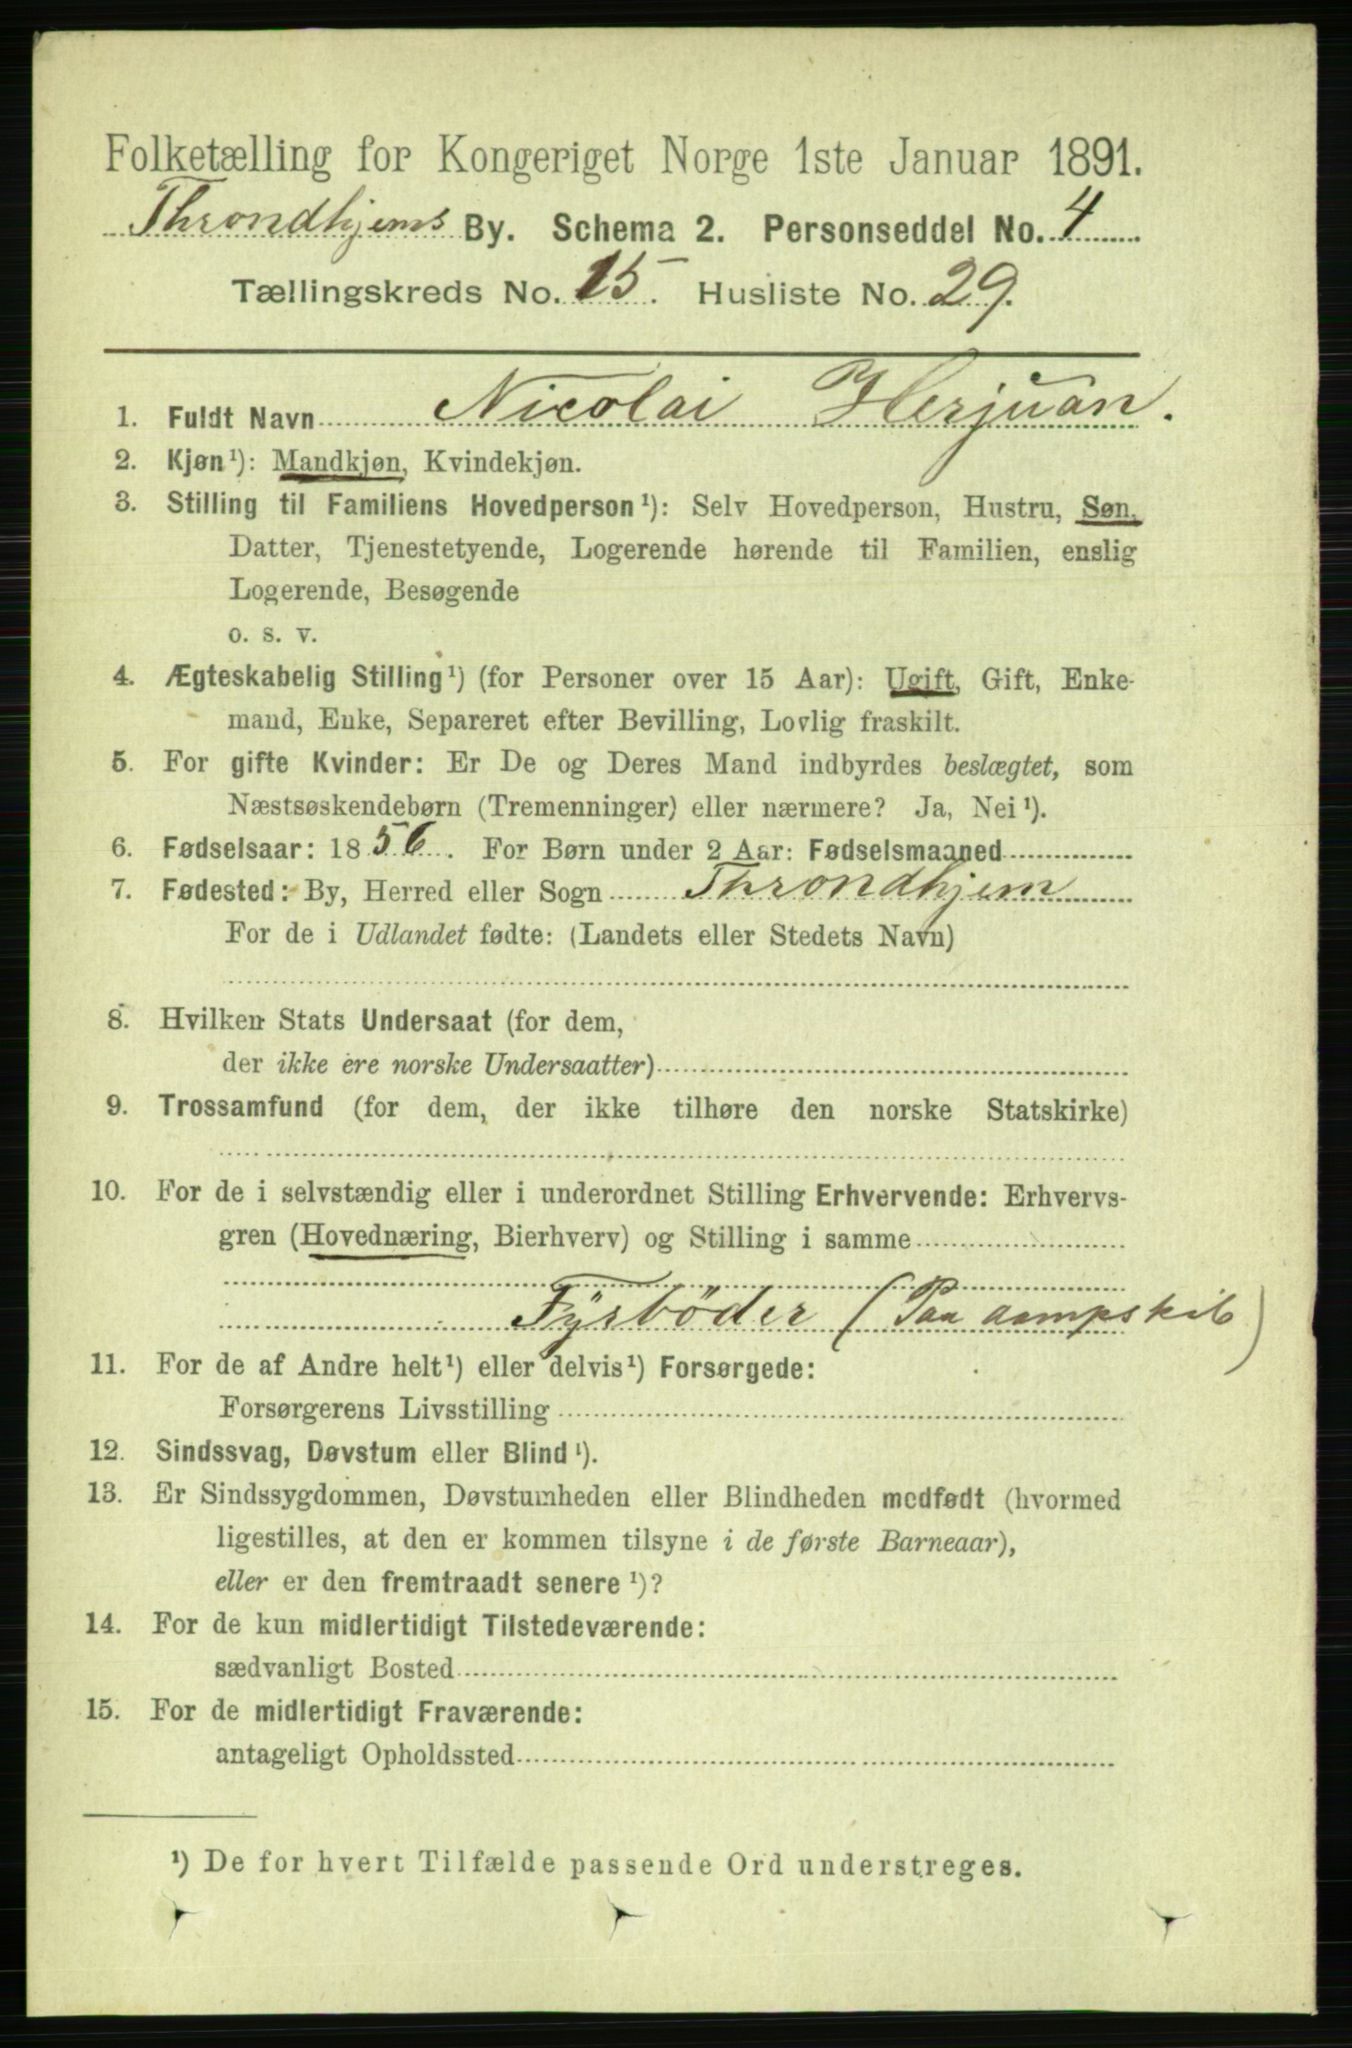 Folketælling for Kongeriget Norge 1ste Januar 1891.
Throndhjems By. Schema 2. Personseddel No. 4
Tællingskreds No. 15. Husliste No. 29.
1. Fuldt Navn Nicolai Herjuan.
2. Kjøn¹): Mandkjøn, Kvindekjøn.
3. Stilling til Familiens Hovedperson¹): Selv Hovedperson, Hustru, Søn,
Datter, Tjenestetyende, Logerende hørende til Familien, enslig
Logerende, Besøgende
o. s. v.
4. Ægteskabelig Stilling¹) (for Personer over 15 Aar): Ugift, Gift, Enke-
mand, Enke, Separeret efter Bevilling, Lovlig fraskilt.
5. For gifte Kvinder: Er De og Deres Mand indbyrdes beslægtet, som
Næstsøskendebørn (Tremenninger) eller nærmere? Ja, Nei¹).
6. Fødselsaar: 1856. For Børn under 2 Aar: Fødselsmaaned
7. Fødested: By, Herred eller Sogn Throndhjem
For de i Udlandet fødte: (Landets eller Stedets Navn)
8. Hvilken Stats Undersaat (for dem,
der ikke ere norske Undersaatter)
9. Trossamfund (for dem, der ikke tilhøre den norske Statskirke)
10. For de i selvstændig eller i underordnet Stilling Erhvervende: Erhvervs-
gren (Hovednæring, Bierhverv) og Stilling i samme
Fÿrböder (Paa dampskib)
11. For de af Andre helt¹) eller delvis¹) Forsørgede:
Forsørgerens Livsstilling
12. Sindssvag, Døvstum eller Blind¹).
13. Er Sindssygdommen, Døvstumheden eller Blindheden medfødt (hvormed
ligestilles, at den er kommen tilsyne i de første Barneaar),
eller er den fremtraadt senere¹)?
14. For de kun midlertidigt Tilstedeværende:
sædvanligt Bosted
15. For de midlertidigt Fraværende:
antageligt Opholdssted
¹) De for hvert Tilfælde passende Ord understreges.